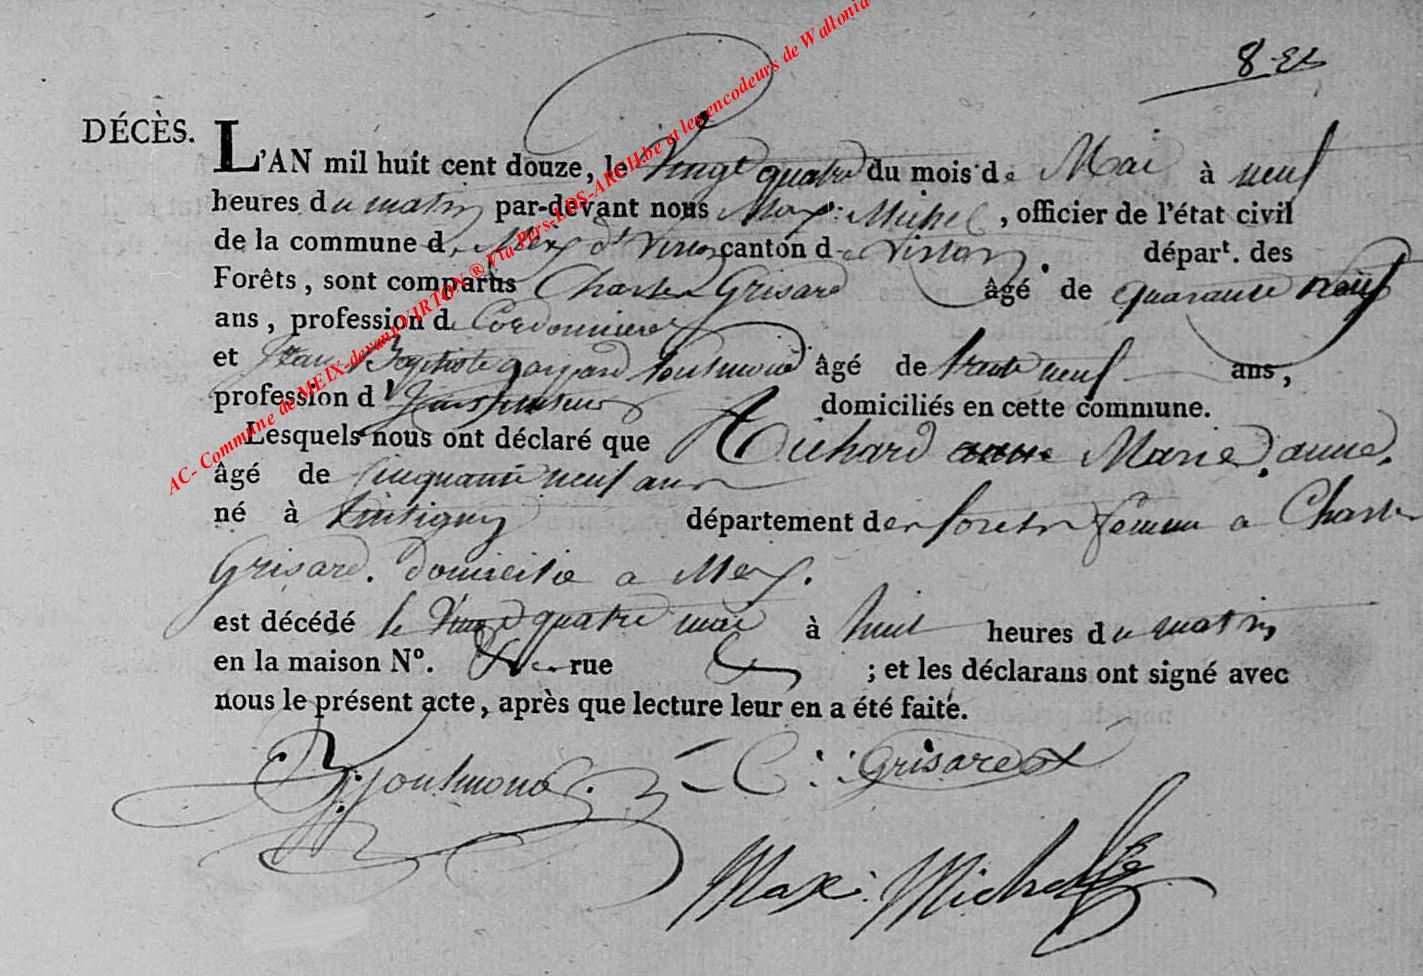 8 
DÉCÈS.
L'AN mil huit cent douze, le Vingt quatre du mois de Mai à neuf
heures du matin par-devant nous Max: Michel, officier de l'état civil
de la commune de Meix dt Virton canton de Virton départ. des
Forêts, sont comparus Charles Grisard âgé de quarante neuf
ans, profession de Cordonnier
et Jean Baptiste toulmond âgé de trente neuf ans,
profession d' domiciliés en cette commune.
Lesquels nous ont déclaré que Richard Marie anne.
âgé de cinquante neuf ans
né à tintigny département des forets femme a Charles
Grisard. domicilié a Meix.
est décédé le Vingt quatre mai à huit heures du matin
en la maison N°. rue ; et les déclarans ont signé avec
nous le présent acte, après que lecture leur en a été faite.
toulmond C: Grisard
Max: Michel
AC- Commune de MEIX-devant-VIRTON ® Via Pers-LDS-ARCH.be et les encodeurs de Wallonia